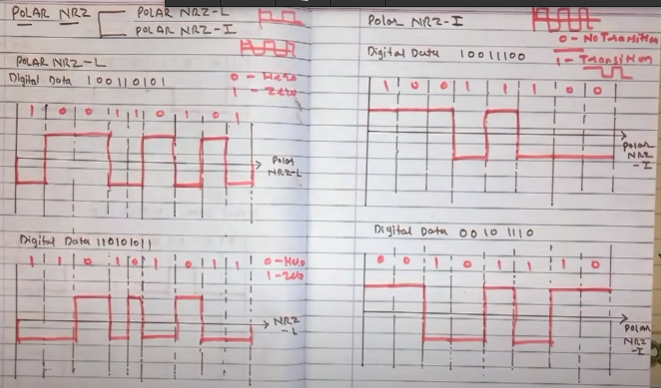 POLAR NRZ
POLAR NRZ-L
POLAR NRZ-I
POLAR NRZ-L
Digital Data 100110101
0 - Hero
1 - Zero
1 0 0 1 1 0 1 0 1
Polar
NRZ-L
Digital Data 110101011
0-Hero
1-zero
1 1 0 1 0 1 0 1 1
NRZ
-L
Polar NRZ-I
0 - No Transition
1 - Transition
Digital Data 10011100
1 0 0 1 1 1 0 0
Polar
NRZ
-I
Digital Data 0010 1110
0 0 1 0 1 1 1 0
POLAR
NRZ
-I